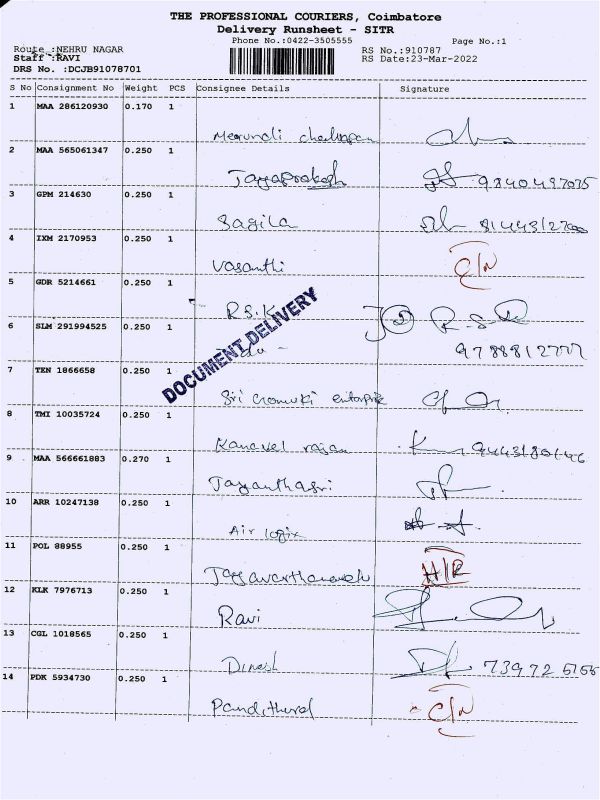 THE PROFESSIONAL COURIERS, Coimbatore
Delivery Runsheet - SITR
Phone No.:0422-3505555 Page No.:1
Route :NEHRU NAGAR RS No.:910787
Staff :RAVI RS Date:23-Mar-2022
DRS No. :DCJB91078701
S No Consignment No Weight PCS Consignee Details Signature
1 MAA 286120930 0.170 1
2 MAA 565061347 0.250 1
Jayaprakash 9840497035
3 GPM 214630 0.250 1
Sagila
4 IXM 2170953 0.250 1
Vasanthi
5 GDR 5214661 0.250 1
R.S.K
6 SLM 291994525 0.250 1
DOCUMENT DELIVERY
7 TEN 1866658 0.250 1
Sri enterprise
8 TMI 10035724 0.250 1
Kanavel rajan
9 MAA 566661883 0.270 1
Jayanthasri
10 ARR 10247138 0.250 1
Air logix
11 POL 88955 0.250 1
12 KLK 7976713 0.250 1
Ravi
13 CGL 1018565 0.250 1
Dinesh
14 PDK 5934730 0.250 1